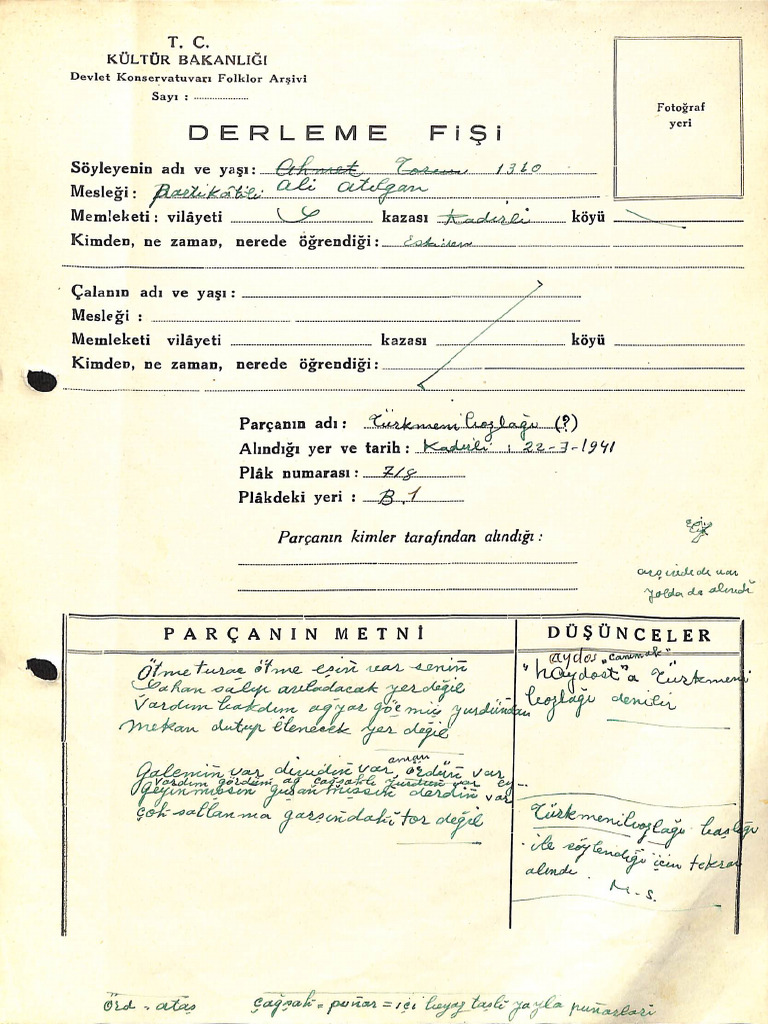 T. C.
KÜLTÜR BAKANLIĞI
Devlet Konservatuvarı Folklor Arşivi
Sayı :
Fotoğraf
yeri
DERLEME FİŞİ
Söyleyenin adı ve yaşı: Ahmet 1310
Mesleği: Ali Atılgan
Memleketi: vilâyeti kazası Kadirli köyü
Kimden, ne zaman, nerede öğrendiği: Eskiden
Çalanın adı ve yaşı :
Mesleği :
Memleketi vilâyeti kazası köyü
Kimden, ne zaman, nerede öğrendiği:
Parçanın adı: Türkmeni bozlağı (?)
Alındığı yer ve tarih : Kadirli : 22-3-1941
Plâk numarası: 718
Plâkdeki yeri : B.1
Parçanın kimler tarafından alındığı :
arşivde de var
yolda da alındı
PARÇANIN METNİ
DÜŞÜNCELER
Ötme turaç ötme eşiñ var seniñ
salıp arıladacak yer değil
Vardım bakdım ağyar göçmüş yurdundan
Mekan dutup ölenecek yer değil
aman
Galemiñ var divudiñ var, ördüñ var
Vardım gördüm ağ çağşaklı yurduñ var ey...
geyinmişsiñ guşanmışsıñ derdiñ var
çok sallanma garşındaki tor değil
aydos "canımak"
"haydost"a Türkmeni
bozlağı denilir
Türkmeni bozlağı başlığı
ile söylendiği için tekrar
alındı.
M-S.
örd = ataş
çağşak = puñar = içi beyaz taşlı yayla puñarları